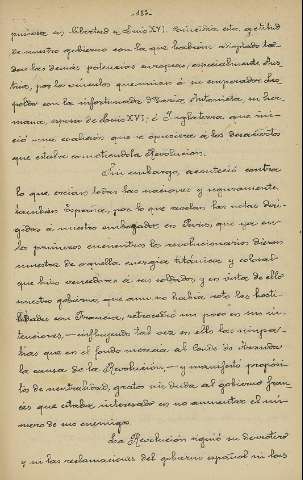 -132-
pusiera en libertad a Luis XVI. Coincidia esta actitud
de nuestro gobierno con la que habian adoptado to-
das las demás potencias europeas, especialmente Aus-
tria, por los vinculos que unian á su emperador Leo-
poldo con la infortunada Maria Antonieta, su her-
mana, esposa de Luis XVI; é Inglaterra que ini-
ció una coalición que se opusiera á los desaciertos
que estaba cometiendo la Revolución.
Sin embargo, aconteció contra
lo que creian todas las naciones y seguramente
tambien España, por lo que revelan las notas diri-
gidas á nuestro embajador en Paris, que ya en
los primeros encuentros los revolucionarios dieron
muestra de aquella energia titánica y colosal
que hizo vencedores á sus soldados, y en vista de ello
nuestro gobierno, que aun no habia roto las hosti-
lidades con Francia, retrocedió un poco en sus in-
tenciones, —influyendo tal vez en ello las simpa-
tias que en el fondo merecia al Conde de Aranda
la causa de la Revolución,— y manifestó propósi-
tos de neutralidad, gratos sin duda al gobierno fran-
cés que estaba interesado en no aumentar el nú-
mero de sus enemigos.
La Revolución siguió su derrotero
y ni las reclamaciones del gobierno español ni las